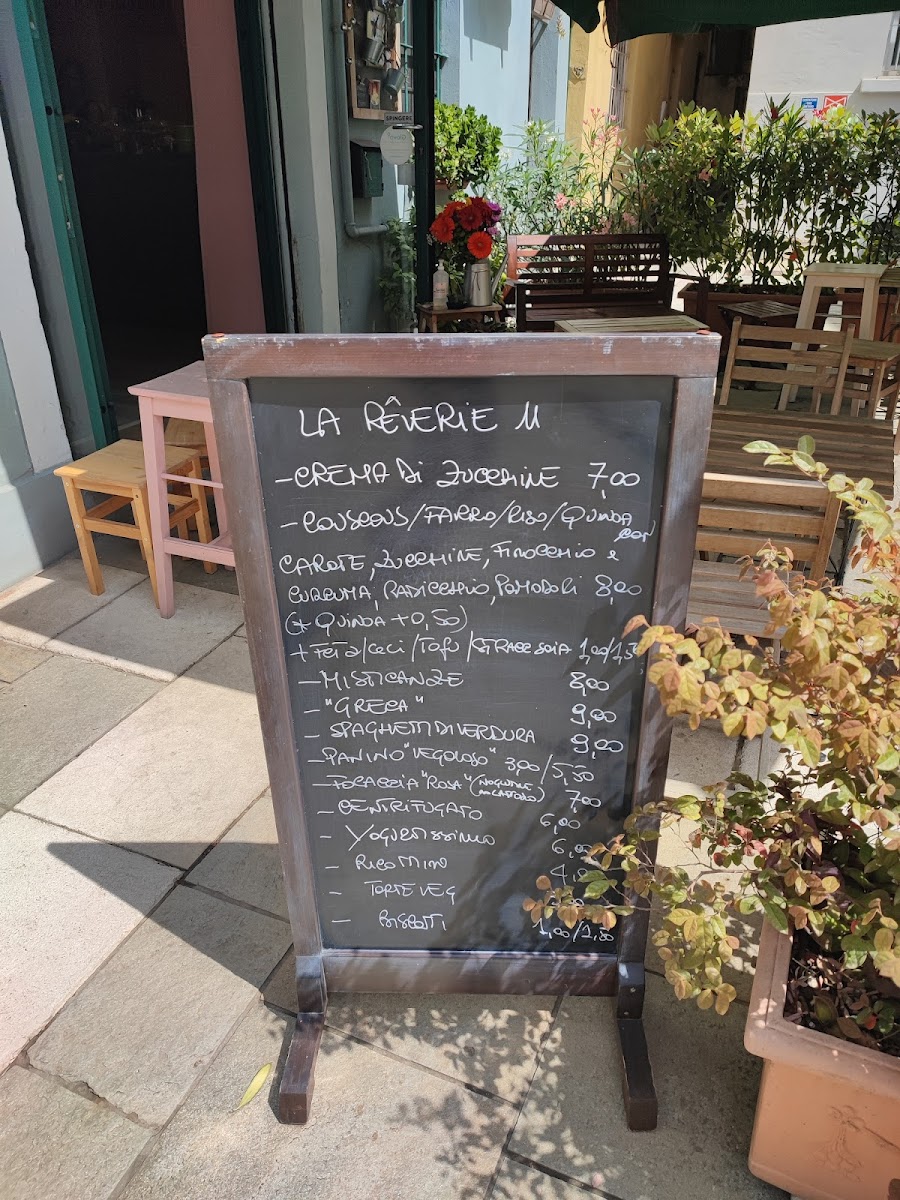 SPINGERE
LA RÊVERIE 11
- CREMA DI ZUCCHINE 7,00
- COUSCOUS/FARRO/RISO/QUINOA CON
CAROTE, ZUCCHINE, FINOCCHIO e
CURCUMA, RADICCHIO, POMODORI 8,00
(* QUINOA +0,50)
+ FETA/CECI/TOFU/STRACCHIA 1,00/1,50
- MISTICANZE 8,00
- "GRECA" 9,00
- SPAGHETTI DI VERDURA 9,00
- PANINO "VEGOLOSO" 3,00/5,50
- FOCACCIA "ROSA" ( 7,00
- CENTRIFUGATO 6,00
- YOGURTISSIMO 6,00
- RICOMINO 4,
- TORTE VEG
- BISCOTTI 1,00/1,50